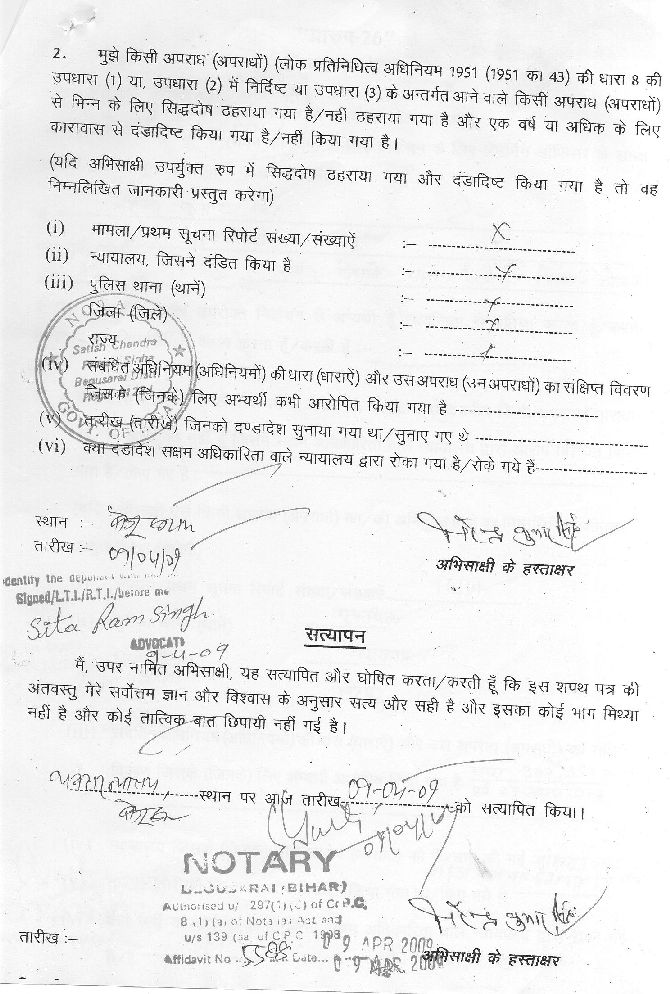 2. मुझे किसी अपराध (अपराधों) (लोक प्रतिनिधित्व अधिनियम 1951 (1951 का 43) की धारा 8 की
उपधारा (1) या, उपधारा (2) में निर्दिष्ट या उपधारा (3) के अन्तर्गत आने वाले किसी अपराध (अपराधों)
से भिन्न के लिए सिद्धदोष ठहराया गया है/नहीं ठहराया गया है और एक वर्ष या अधिक के लिए
कारावास से दंडादिष्ट किया गया है/नहीं किया गया है।
(यदि अभिसाक्षी उपर्युक्त रुप में सिद्धदोष ठहराया गया और दंडादिष्ट किया गया है तो वह
निम्नलिखित जानकारी प्रस्तुत करेगा)
(i) मामला/प्रथम सूचना रिपोर्ट संख्या/संख्याऐं :- X
(ii) न्यायालय, जिसने दंडित किया है :- x
(iii) पुलिस थाना (थानें) :- x
जिला (जिलें) :- x
राज्य :- x
NOTARY
Satish Chandra
Sinha
Begusarai Distt
GOVT. OF INDIA
(iv) संबंधित अधिनियम (अधिनियमों) की धारा (धाराऐं) और उस अपराध (उन अपराधों) का संक्षिप्त विवरण
जिसके (जिनके) लिए अभ्यर्थी कभी आरोपित किया गया है
(v) तारीख (तारीखें) जिनको दण्डादेश सुनाया गया था/सुनाए गए थे
(vi) क्या दंडादेश सक्षम अधिकारिता वाले न्यायालय द्वारा रोका गया है/रोके गये हैं
स्थान :-
तारीख :- 09/04/09
अभिसाक्षी के हस्ताक्षर
Identify the deponent
Signed/L.T.I./R.T.I./before me
Sita Ram Singh
ADVOCATE
9-4-09
सत्यापन
मैं, उपर नामित अभिसाक्षी, यह सत्यापित और घोषित करता/करती हूँ कि इस शपथ पत्र की
अंतवस्तु मेरे सर्वोत्तम ज्ञान और विश्वास के अनुसार सत्य और सही है और इसका कोई भाग मिथ्या
नहीं है और कोई तात्विक बात छिपायी नहीं गई है।
स्थान पर आज तारीख 09-04-09 को सत्यापित किया।
09/04/09
NOTARY
BEGUSARAI (BIHAR)
Authorised u/ 297(1)(c) of Cr.P.C.
8 (1) (a) of Notaries Act and
u/s 139 of C.P.C. 1908
Affidavit No Date 09 APR 2009
09 APR 2009
तारीख :-
अभिसाक्षी के हस्ताक्षर